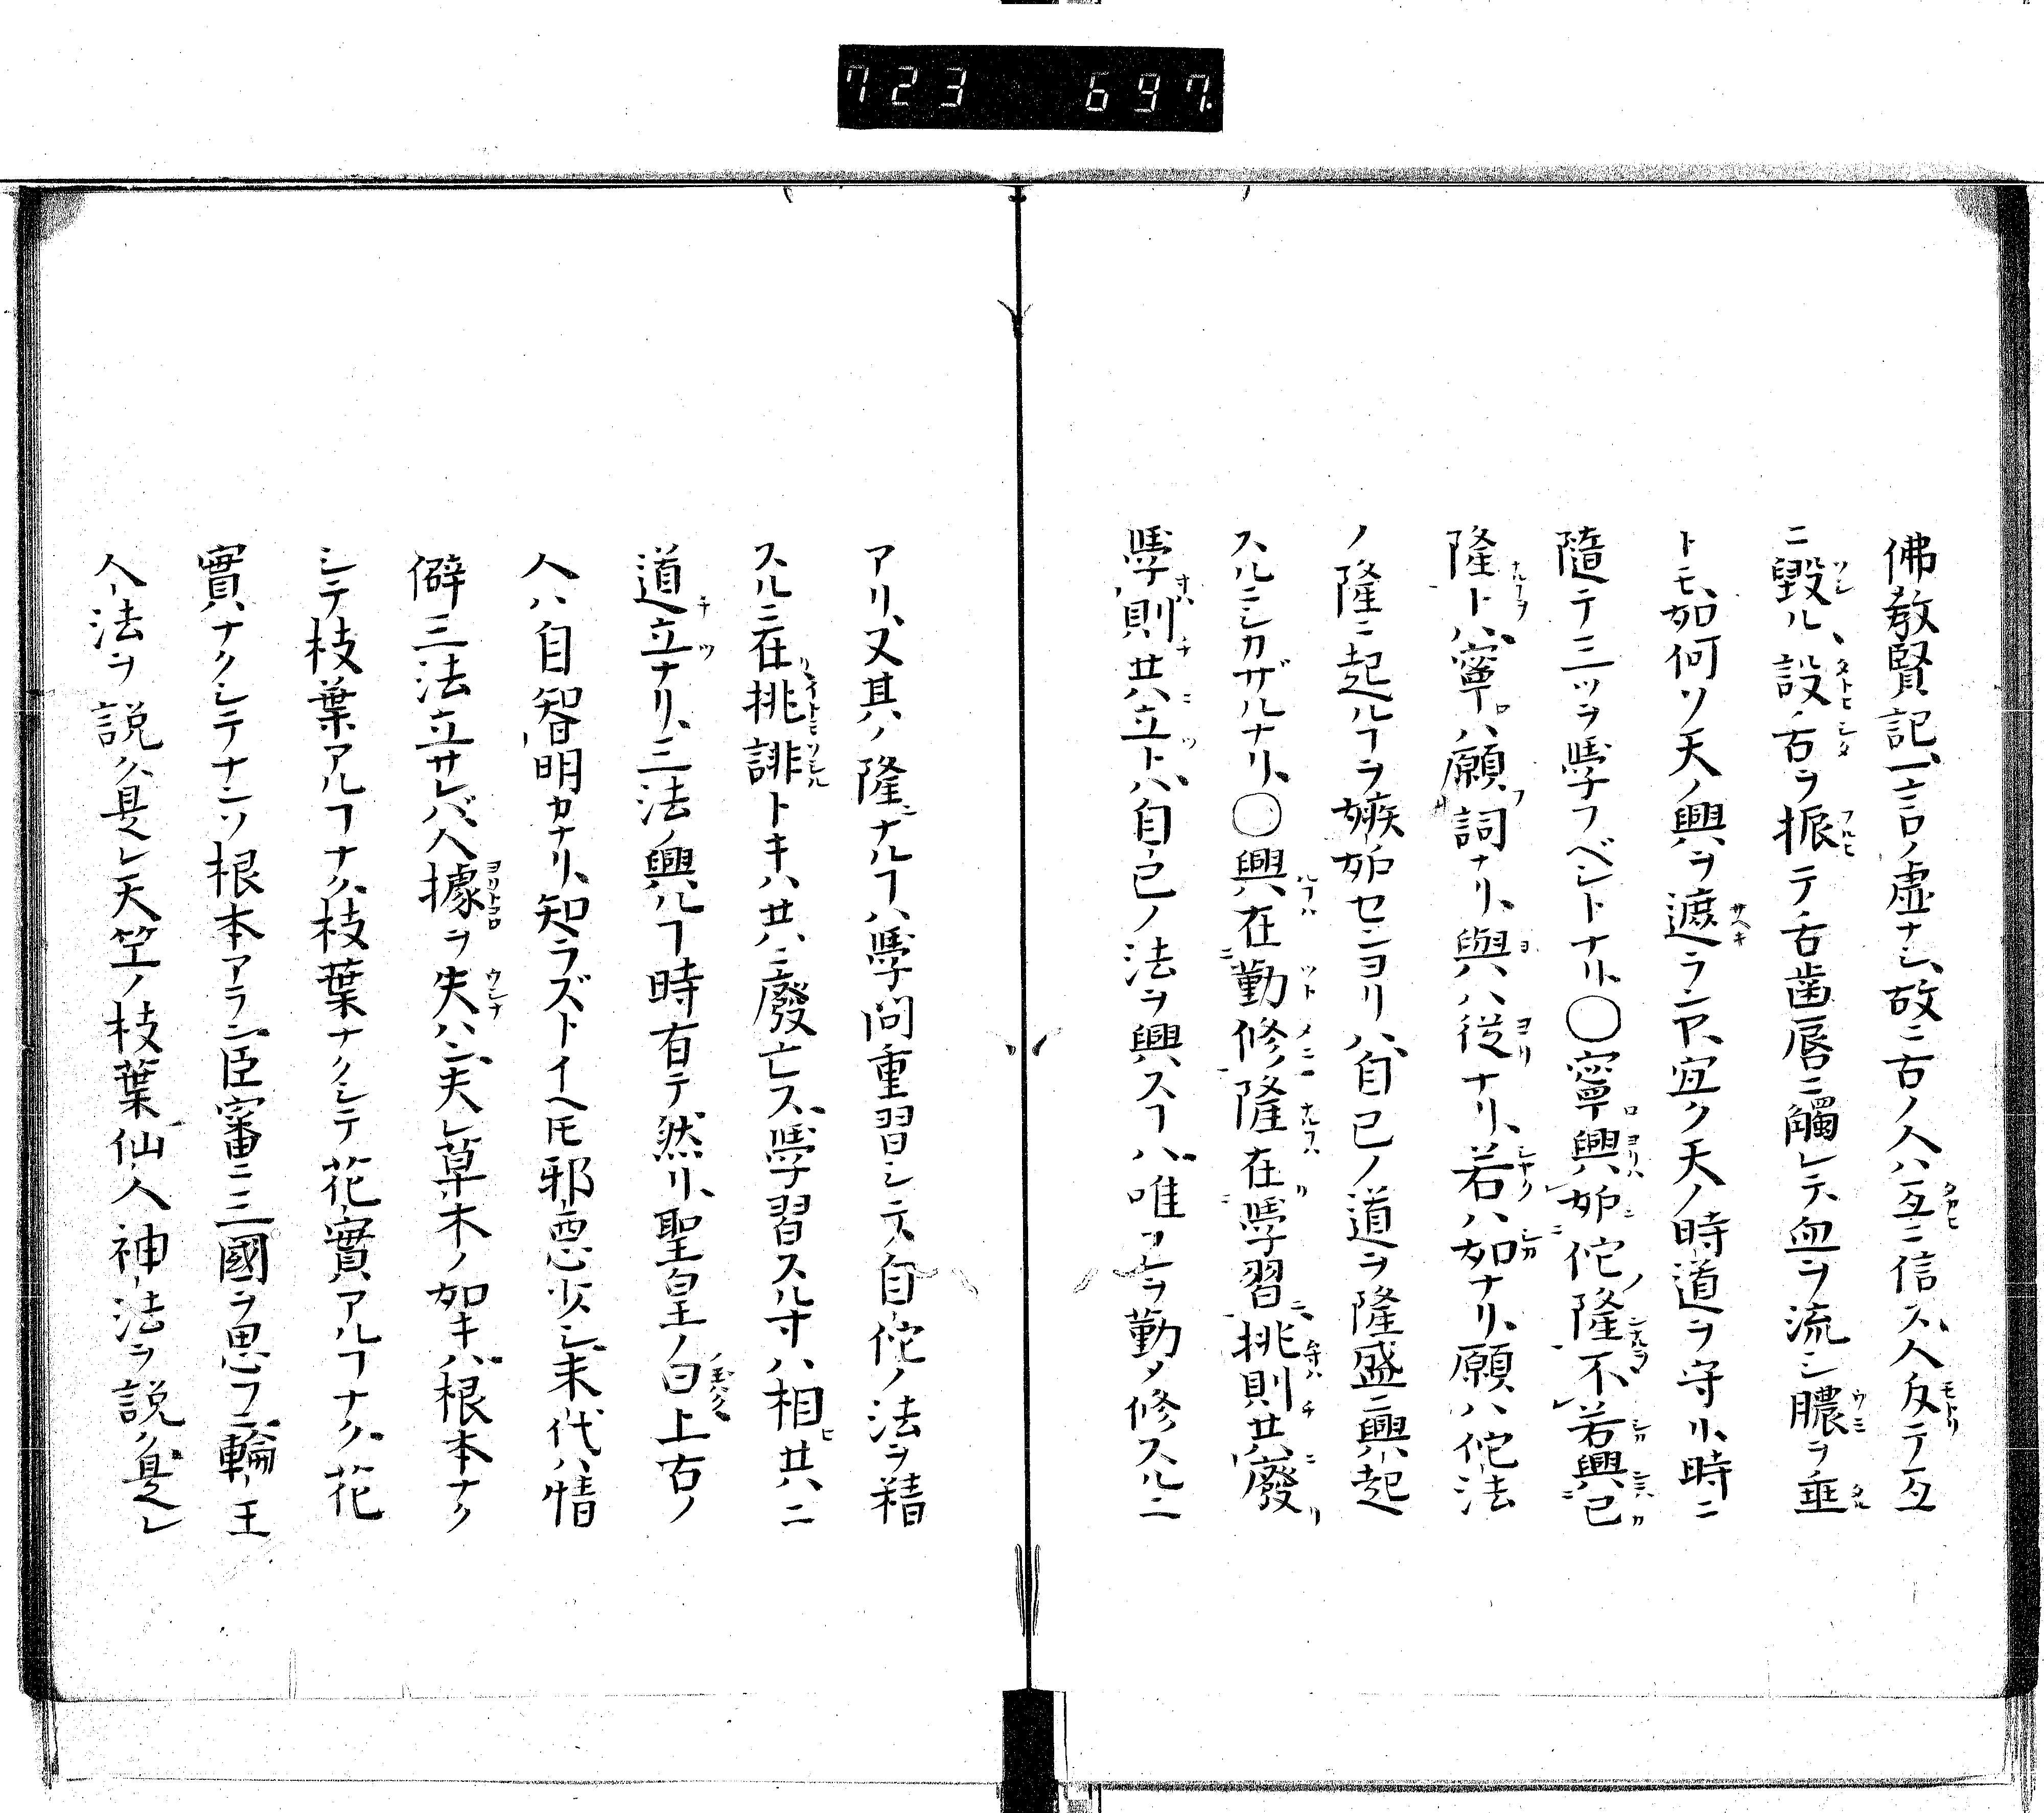 723 697
佛教賢記、一言ノ虚ナシ、故ニ古ノ人ハ互ニ信ス、人反テ互
ニ毀ル、設ノ舌ヲ振テ、舌歯唇ニ觸レテ、血ヲ流シ膿ヲ垂
トモ、如何ソ天ノ興ヲ遮ランヤ、宜ク天ノ時道ヲ守リ、時ニ
隨テ三ツヲ學フベシトナリ、〇寧興妬佗隆不若興己
隆トハ、寧ハ願詞ナリ、與ハ従ナリ、若ハ如ナリ、願ハ佗法
ノ隆ニ起ルヿヲ嫉妬センヨリハ、自己ノ道ヲ隆盛ニ興起
スルニシカザルナリ、〇興在勤修隆在學習挑則共廢
學則共立トハ、自己ノ法ヲ興スヿハ唯コレヲ勤メ修スルニ
アリ、又其ノ隆ナルヿハ學問重習シテ、自佗ノ法ヲ精
スルニ在、挑誹トキハ共ニ廢亡ス、學習スル寸ハ相共ニ
道立ナリ、三法ノ興ルヿ時有テ然リ、聖皇ノ曰上古ノ
人ハ自智明カナリ、知ラズトイヘ𪜈邪悪少シ、末代ハ情
僻三法立サレバ、人據ヲ失ハン、夫レ草木ノ如キハ、根本ナク
シテ枝葉アルヿナク、枝葉ナクシテ花實アルヿナク、花
實ナクシテナンソ根本アラン、臣審ニ三國ヲ思フニ、輪王
人法ヲ説ク、是レ天竺ノ枝葉、仙人神法ヲ説ク、是レ